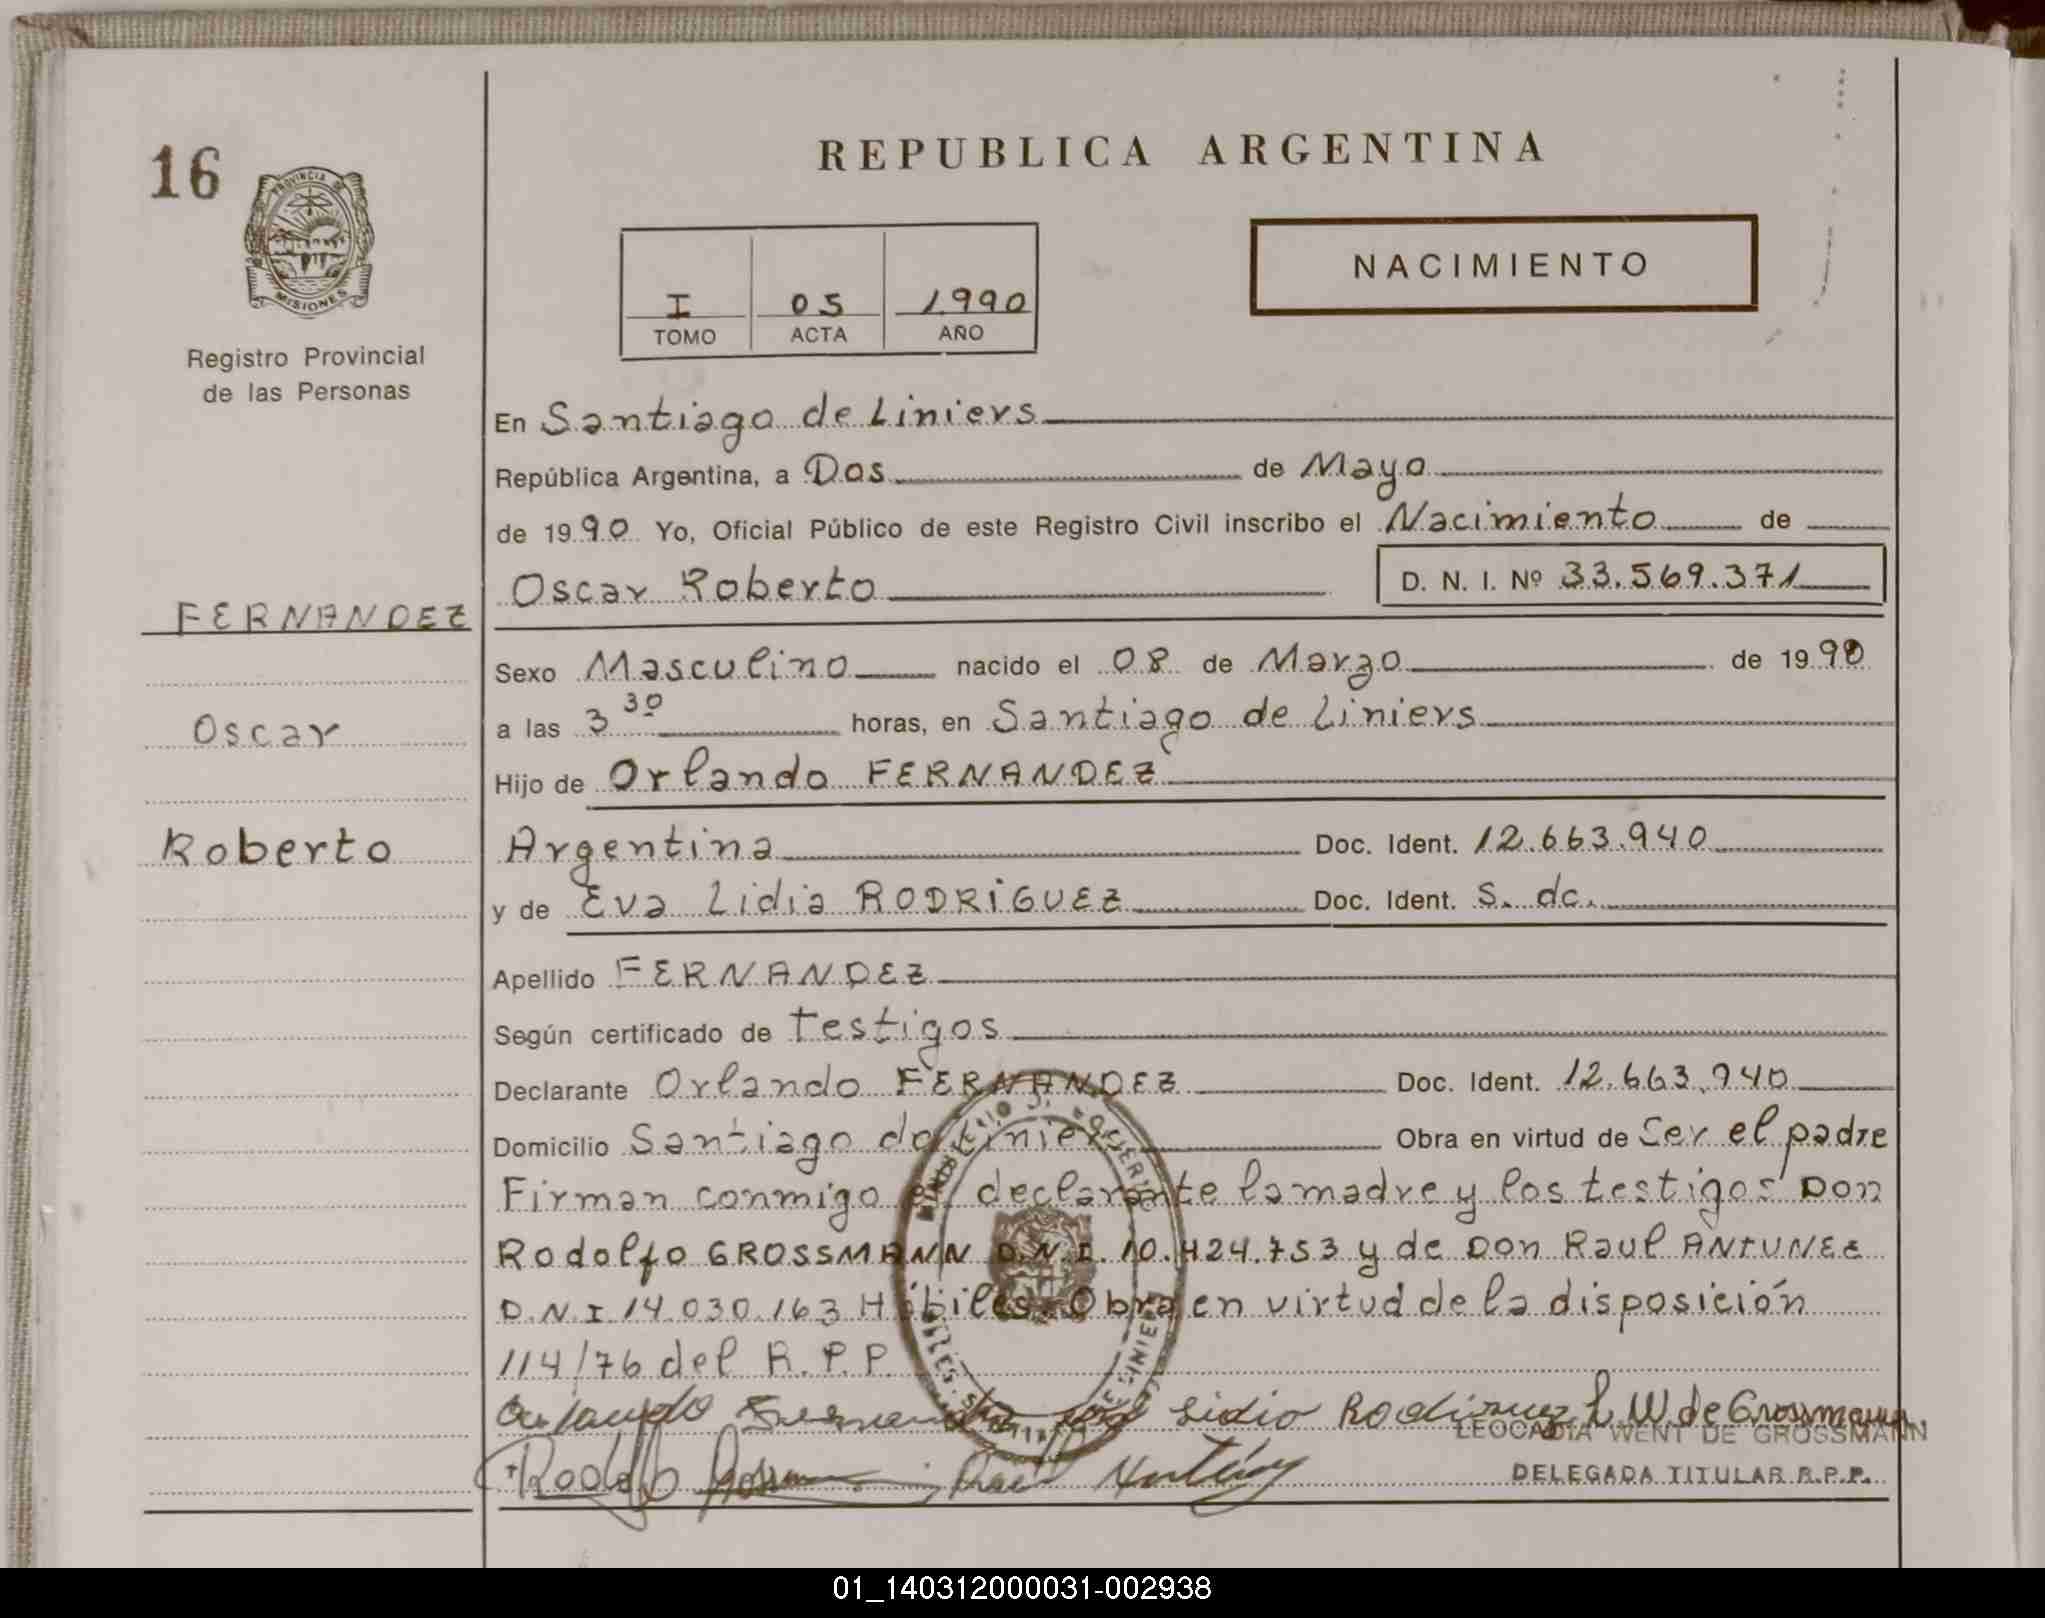 16
REPUBLICA ARGENTINA
PROVINCIA DE
MISIONES
NACIMIENTO
I 05 1990
TOMO ACTA AÑO
Registro Provincial
de las Personas
En Santiago de Liniers
República Argentina, a Dos de Mayo
de 1990 Yo, Oficial Público de este Registro Civil inscribo el Nacimiento de
Oscar Roberto D. N. I. Nº 33.569.371
FERNANDEZ
Sexo Masculino nacido el 08 de Marzo de 1990
a las 3 30 horas, en Santiago de Liniers
Oscar
Hijo de Orlando FERNANDEZ
Roberto
Argentina Doc. Ident. 12.663.940
y de Eva Lidia RODRIGUEZ Doc. Ident. S. dc.
Apellido FERNANDEZ
Según certificado de testigos
Declarante Orlando FERNANDEZ Doc. Ident. 12.663.940
Domicilio Santiago de Liniers Obra en virtud de Ser el padre
Firman conmigo declarante la madre y los testigos Don
Rodolfo GROSSMANN D.N.I. 10.424.753 y de Don Raul ANTUNEZ
D.N.I 14.030.163 Hábiles. Obra en virtud de la disposición
114/76 del R.P.P.
Orlando Fernandez Lidio Rodriguez L. W. de Grossmann
LEOCADIA WENT DE GROSSMANN
Rodolfo Grossmann Raul Antúnez
DELEGADA TITULAR R.P.P.
01_140312000031-002938